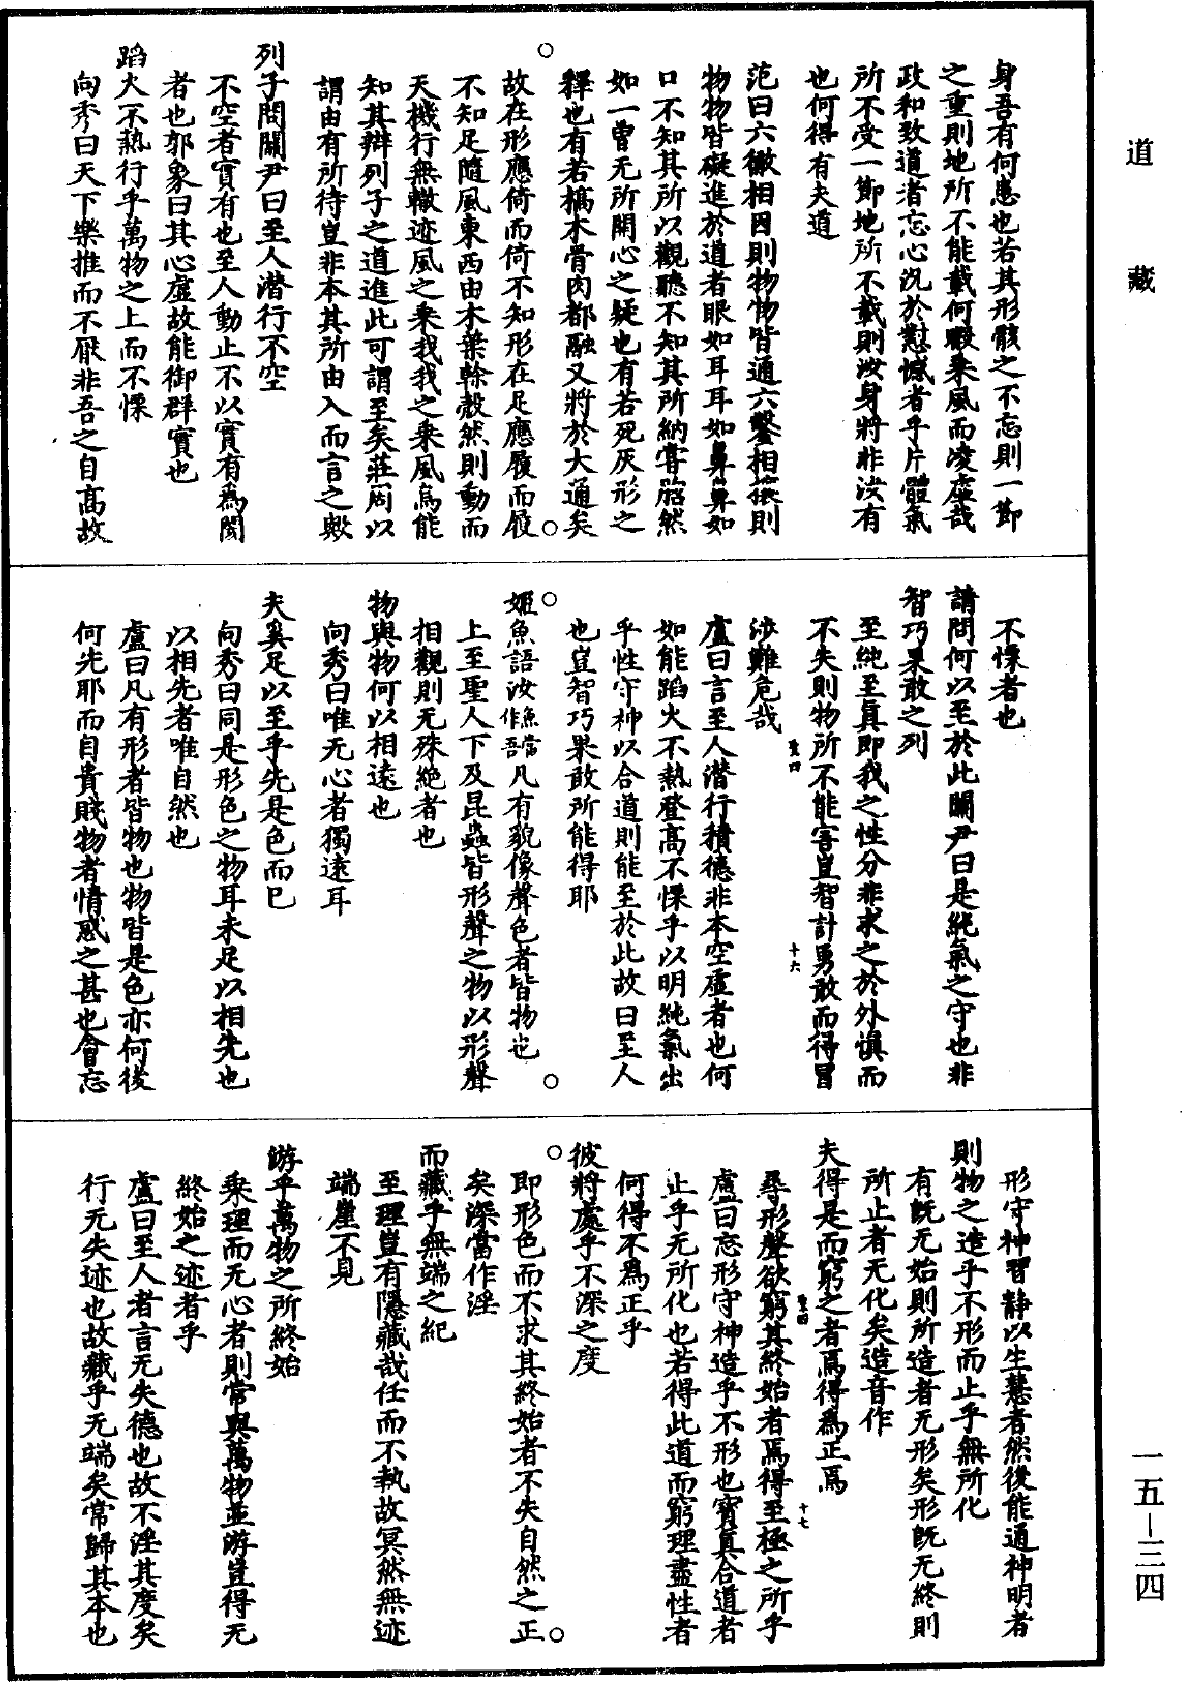 道藏
身吾有何患也若其形骸之不忘則一節
之重則地所不能載何暇乘風而凌虛哉
政和致道者忘心況於懟憾者乎片體氣
所不受一節地所不載則汝身將非汝有
也何得有夫道
范曰六徹相因則物物皆通六鑿相攘則
物物皆礙進於道者眼如耳耳如鼻鼻如
口不知其所以觀聽不知其所納嘗㫚然
如一曾无所開心之疑也有若死灰形之
釋也有若槁木骨肉都融又將於大通矣
故在形應倚而倚不知形在足應履而履
不知足隨風東西由木葉榦殼然則動而
天機行無轍迹風之乘我我之乘風烏能
知其辯列子之道進此可謂至矣莊周以
謂由有所待豈非本其所由入而言之歟
列子問關尹曰至人潛行不空
不空者實有也至人動止不以實有為閡
者也郭象曰其心虛故能御群實也
蹈火不熱行乎萬物之上而不慄
向秀曰天下樂推而不厭非吾之自高故
不慄者也
請問何以至於此關尹曰是純氣之守也非
智巧果敢之列
至純至真即我之性分非求之於外慎而
不失則物所不能害豈智計勇敢而得冒
涉難危哉
盧曰言至人潛行積德非本空虛者也何
如能蹈火不熱登高不慄乎以明純氣出
乎性守神以合道則能至於此故曰至人
也豈智巧果敢所能得耶
姬魚語汝魚當作吾凡有貌像聲色者皆物也
上至聖人下及昆蟲皆形聲之物以形聲
相觀則无殊絕者也
物與物何以相遠也
向秀曰唯无心者獨遠耳
夫奚足以至乎先是色而已
向秀曰同是形色之物耳未足以相先也
以相先者唯自然也
盧曰凡有形者皆物也物皆是色亦何後
何先耶而自貴賤物者情惑之甚也會忘
形守神習静以生慧者然後能通神明者
則物之造乎不形而止乎無所化
有既无始則所造者无形矣形既无終則
所止者无化矣造音作
夫得是而窮之者焉得為正焉
尋形聲欲窮其終始者焉得至極之所乎
盧曰忘形守神造乎不形也寶真合道者
止乎无所化也若得此道而窮理盡性者
何得不為正乎
彼將處乎不深之度
即形色而不求其終始者不失自然之正
矣深當作淫
而藏乎無端之紀
至理豈有隱藏哉任而不執故冥然無迹
端崖不見
游乎萬物之所終始
乘理而无心者則常與萬物並游豈得无
終始之迹者乎
盧曰至人者言无失德也故不淫其度矣
行无失迹也故藏乎无端矣常歸其本也
聖四
十六
聖四
十七
一五－三四